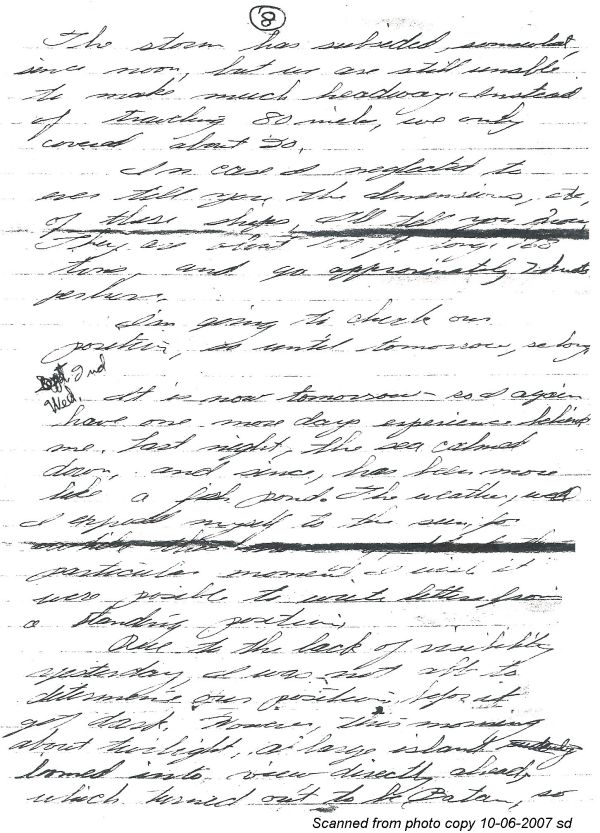 8
The storm has subsided, somewhat,
since noon, but we are still unable
to make much headway. Instead
of traveling 80 miles, we only
covered about 30.
In case I neglected to
ever tell you the dimensions, etc,
of these ships, I'll tell you now.
They are about ft. long,
tons, and go approximately 7 knots
perhour.
I'm going to check our
position, so until tomorrow, so long
Sept 2nd
Wed.
It is now tomorrow - so I again
have one more days experience behind
me. Last night, the sea calmed
down, and since, has been more
like a fish pond. The weather, well
I exposed myself to the sun, for
particular moment I wish it
were posible to write letters from
a standing position.
Due to the lack of visibility
yesterday, I was not able to
determine our position before it
got dark. However, this morning
about twilight, a large island suddenly
loomed into view directly ahead,
which turned out to be Batan, so
Scanned from photo copy 10-06-2007 sd